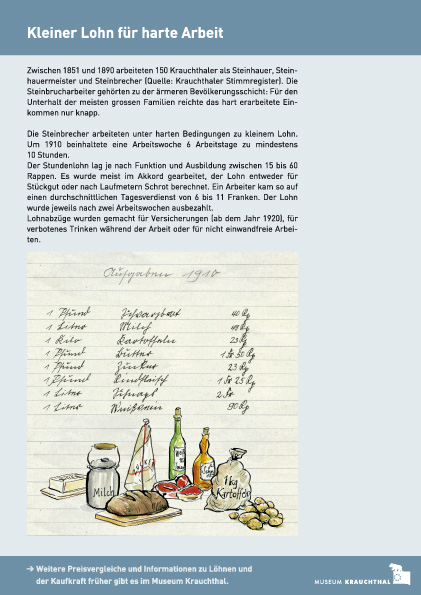 Kleiner Lohn für harte Arbeit
Zwischen 1851 und 1890 arbeiteten 150 Krauchthaler als Steinhauer, Stein-
hauermeister und Steinbrecher (Quelle: Krauchthaler Stimmregister). Die
Steinbrucharbeiter gehörten zu der ärmeren Bevölkerungsschicht: Für den
Unterhalt der meisten grossen Familien reichte das hart erarbeitete Ein-
kommen nur knapp.
Die Steinbrecher arbeiteten unter harten Bedingungen zu kleinem Lohn.
Um 1910 beinhaltete eine Arbeitswoche 6 Arbeitstage zu mindestens
10 Stunden.
Der Stundenlohn lag je nach Funktion und Ausbildung zwischen 15 bis 60
Rappen. Es wurde meist im Akkord gearbeitet, der Lohn entweder für
Stückgut oder nach Laufmetern Schrot berechnet. Ein Arbeiter kam so auf
einen durchschnittlichen Tagesverdienst von 6 bis 11 Franken. Der Lohn
wurde jeweils nach zwei Arbeitswochen ausbezahlt.
Lohnabzüge wurden gemacht für Versicherungen (ab dem Jahr 1920), für
verbotenes Trinken während der Arbeit oder für nicht einwandfreie Arbei-
ten.
Ausgaben 1910
1 Pfund Schwarzbrot 40 Rp
1 Liter Milch Rp
1 Kilo Kartoffeln 23 Rp
1 Pfund Butter 1 Fr 90 Rp
1 Pfund Zucker 23 Rp
1 Pfund Rindfleisch 1 Fr 25 Rp
1 Liter Schnaps 2 Fr
1 Liter Weisswein 90 Rp
Milch
1kg
Kartoffeln
→ Weitere Preisvergleiche und Informationen zu Löhnen und
der Kaufkraft früher gibt es im Museum Krauchthal.
MUSEUM KRAUCHTHAL